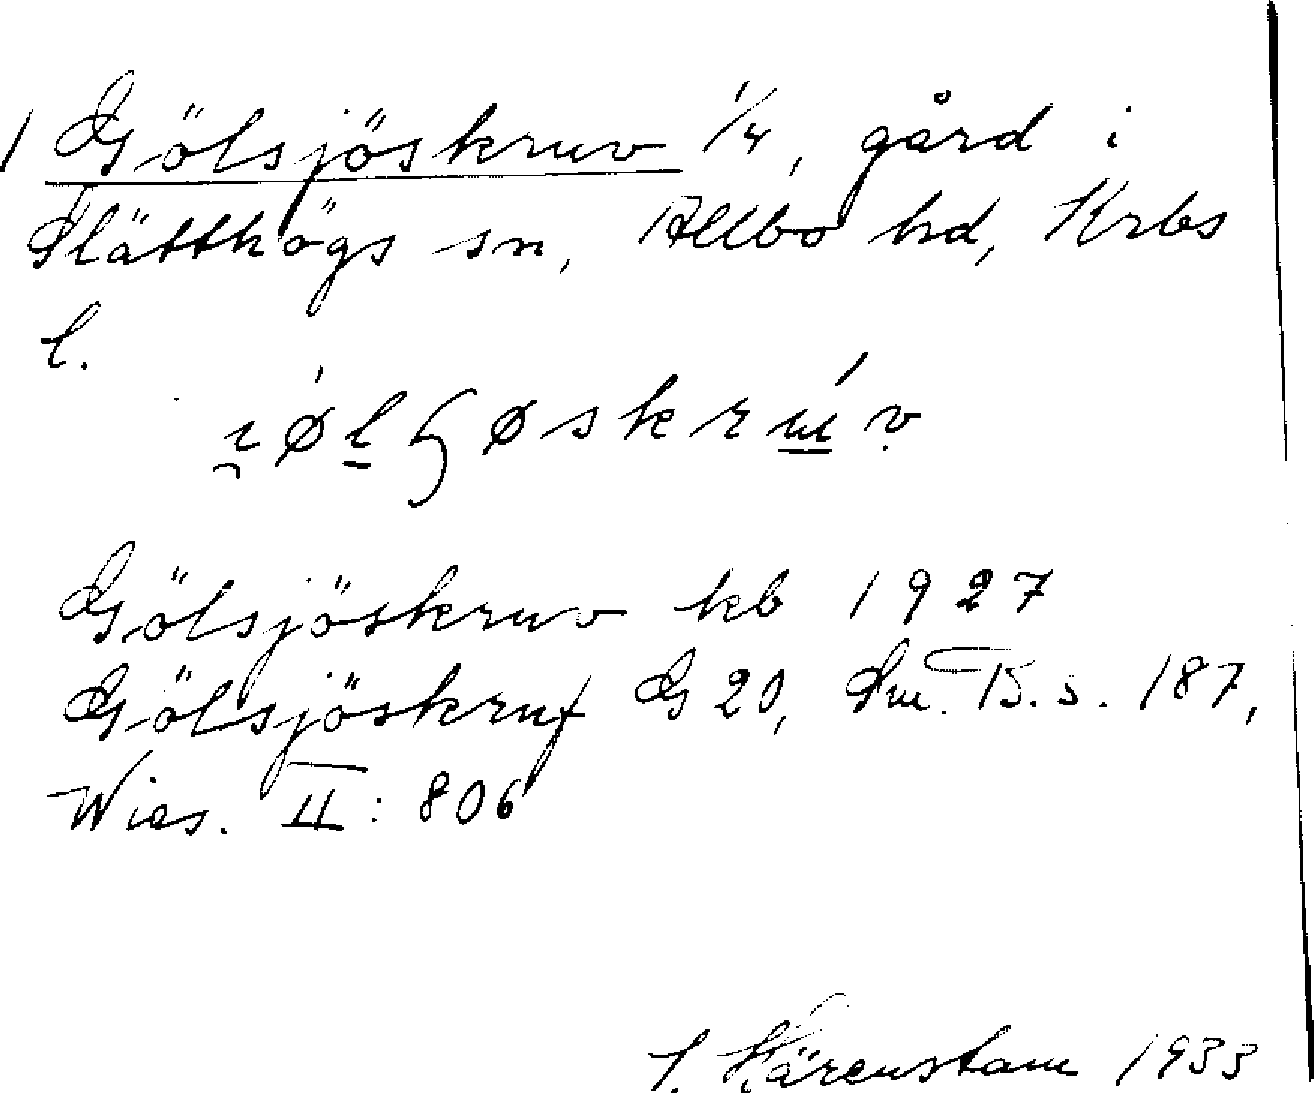 1 Gölsjöskruv 1/4, gård i
Slätthögs sn, Allbo hd, Krbs
l.
Gölsjöskruv kb 1927
Gölsjöskruf G 20, Sm. B. s. 187,
Wies. II: 806
Kärenstam 1933